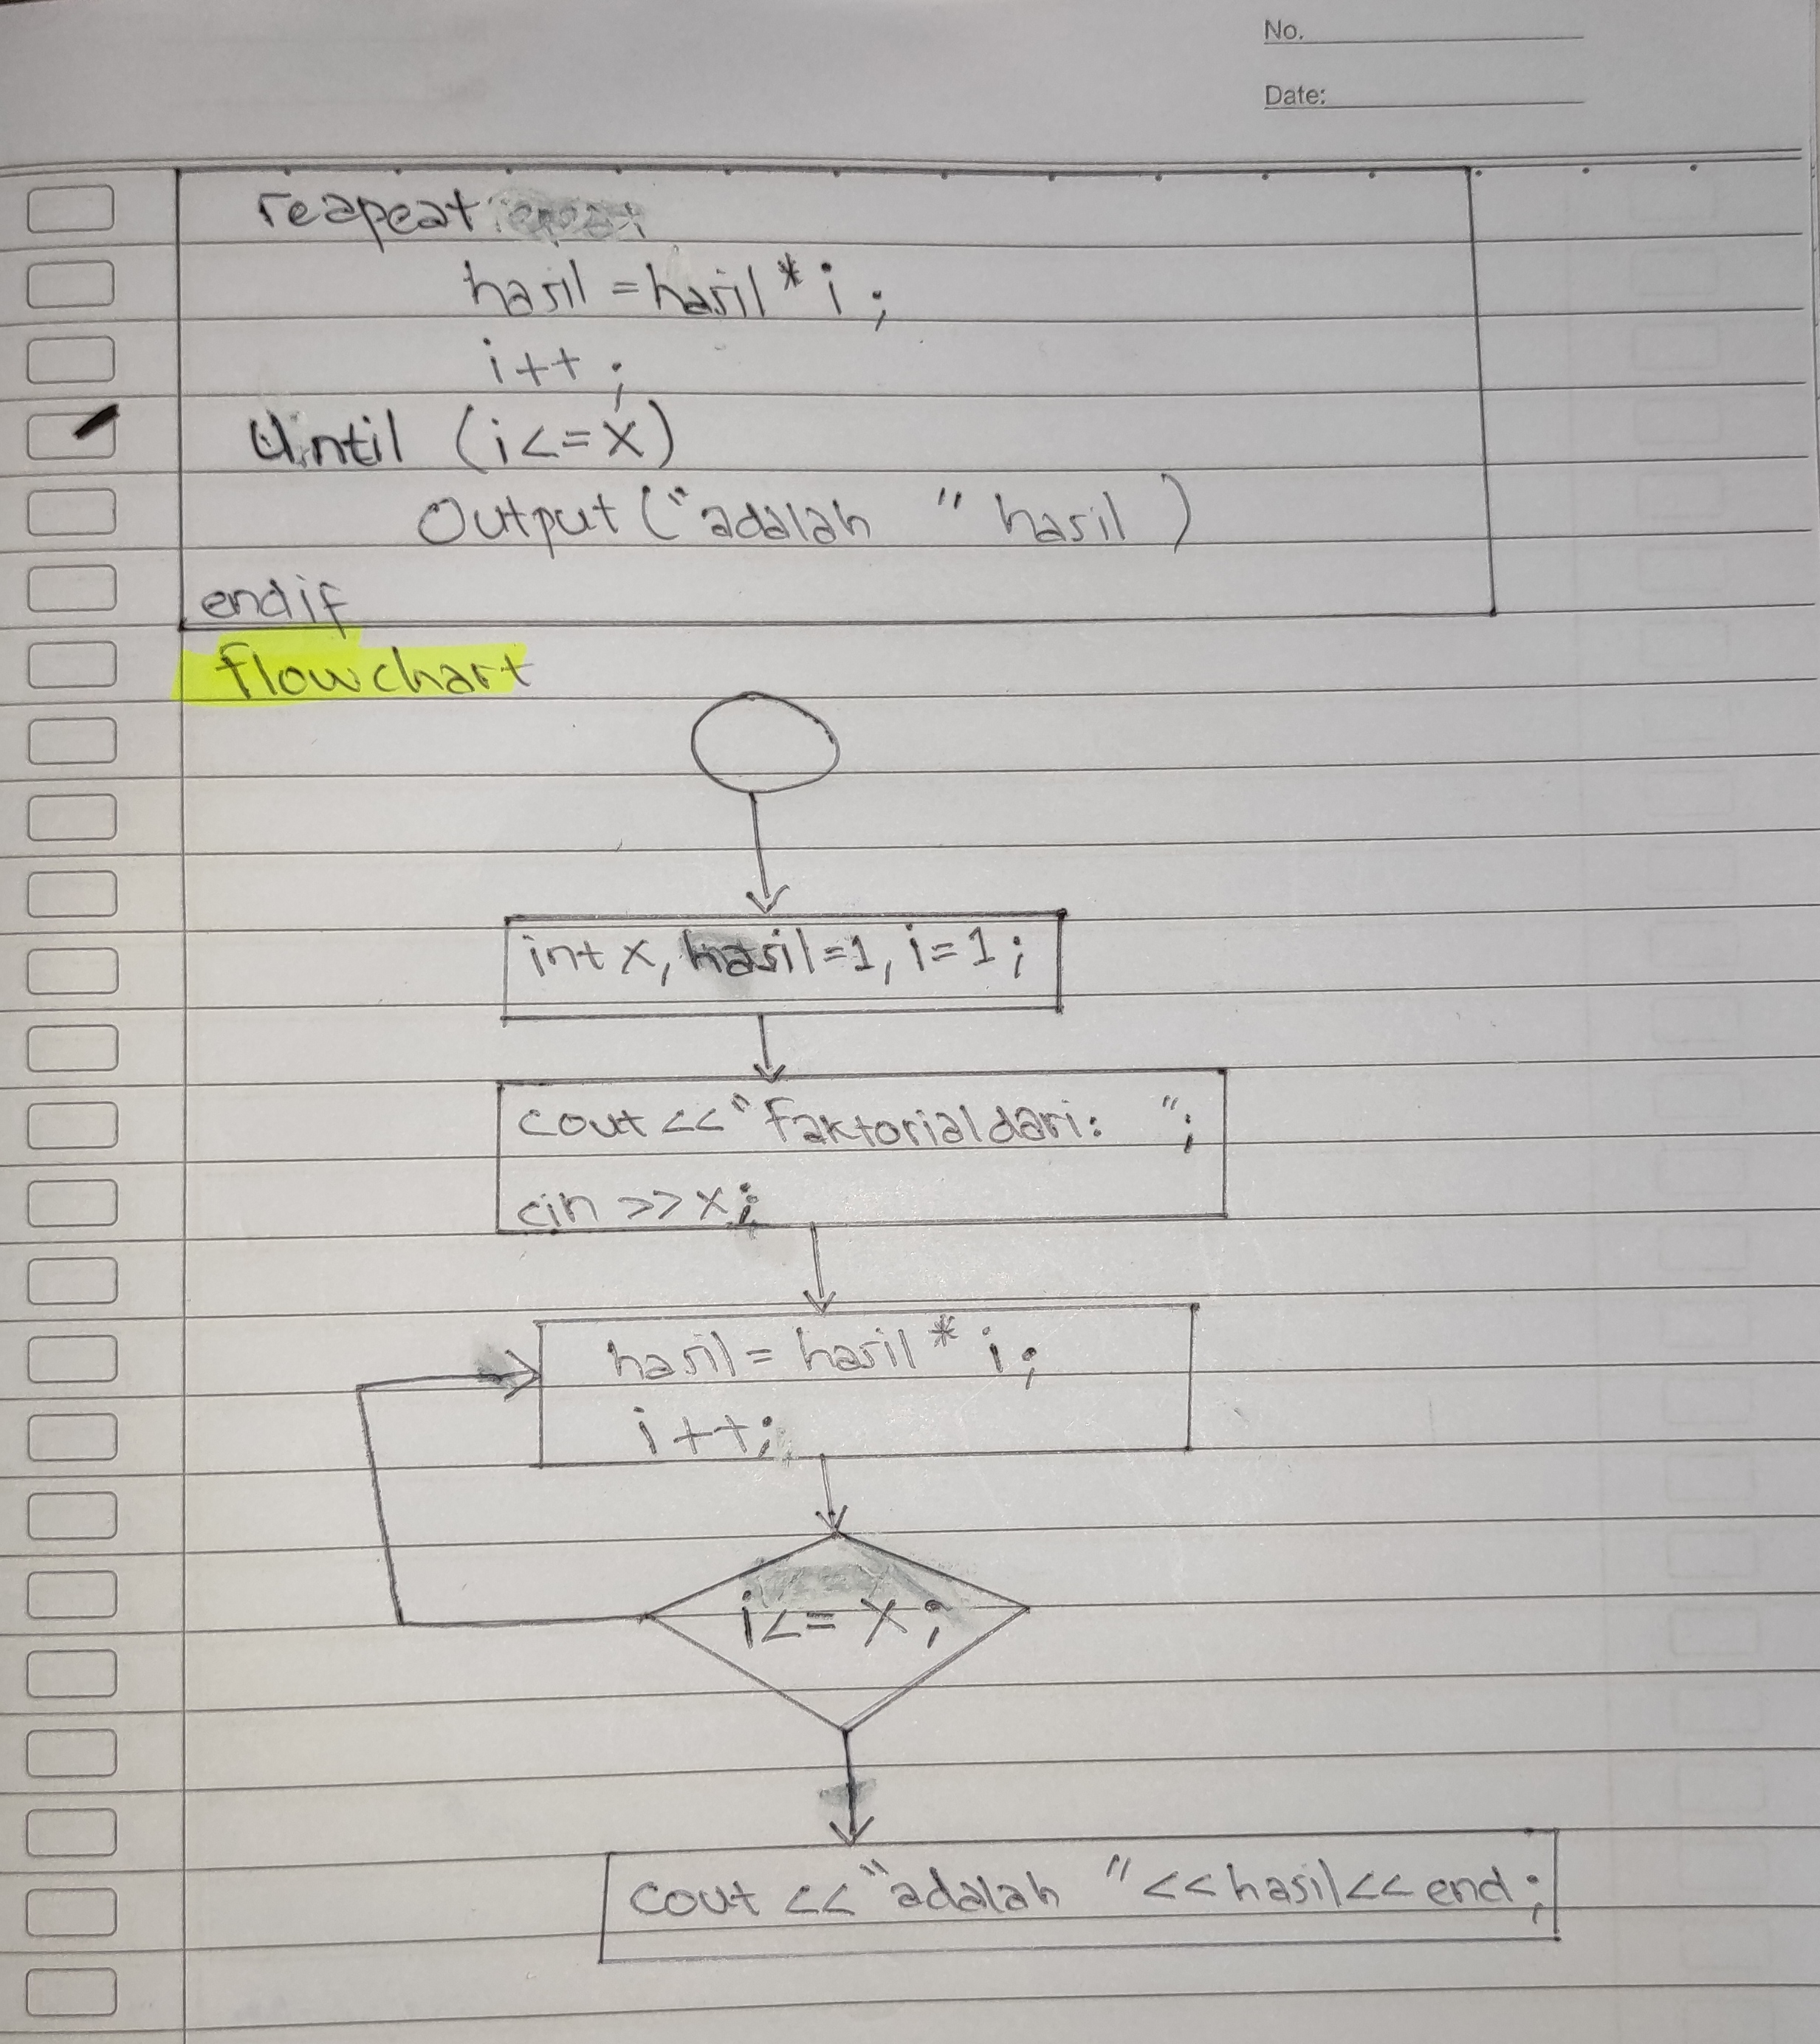 No.
Date:
reapeat
hasil = hasil * i ;
i++ ;
Until (i<=x)
Output ("adalah " hasil )
endif
flowchart
int x, hasil=1, i=1 ;
cout << "Faktorial dari: ";
cin >> x;
hasil = hasil * i ;
i++;
i<= x ;
cout << "adalah " << hasil << end ;